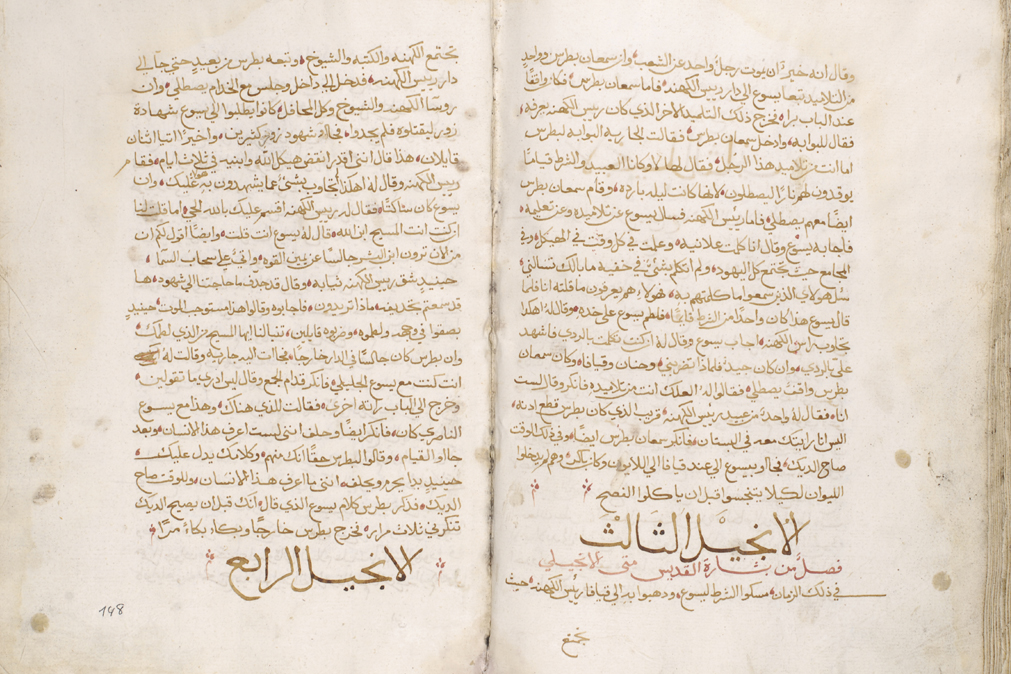 وقال انه خير ان يموت رجل واحد عن الشعب وان سمعان بطرس وواحد
من التلاميذ تبعا يسوع الى دار رييس الكهنه فاما سمعان بطرس فكان واقفا
عند الباب برا فخرج ذلك التلميذ الاخر الذي كان رييس الكهنه يعرفه
فقال للبوابه وادخل سمعان بطرس فقالت الجاريه البوابه لبطرس
اما انت من تلاميذ هذا الرجل فقال لها لا وكانا العبيد والشرط قياما
يوقدون لهم نارا ليصطلون لانها كانت ليله بارده وقام سمعان بطرس
ايضا معهم يصطلي فاما رييس الكهنه فسال يسوع عن تلاميذه وعن تعليمه
فاجابه يسوع وقال انا كلمت علانيه وعلمت في كل وقت في الهيكل وفي
المجامع حيث يجتمع كل اليهود ولم اتكلم بشي في خفيه ما بالك تسالني
سل هولاي الذين سمعوا ما كلمتهم به هولا هم يعرفون ما قلته انا فلما
قال يسوع هذا كان واحدا من الشرط قايما فلطم يسوع على خده وقال له اهكذا
تجاوب راس الكهنه اجاب يسوع وقال له ان كنت تكلمت بالردي فاشهد
على بالردي وان كان جيد فلماذا تضربني وحنان وقيافا وكان سمعان
بطرس واقف يصطلي فقالوا له لعلك انت من تلاميذه فانكر وقال لست
انا فقال له واحد من عبيد رييس الكهنه قريب الذي كان بطرس قطع اذنه
اليس انا رايتك معه في البستان فانكر سمعان بطرس ايضا وفي ذلك الوقت
صاح الديك فجاوا بيسوع الى عند قيافا الى وكان باكر وهم لم يدخلوا
الليوان لكيلا يتنجسوا قبل ان ياكلوا الفصح
الانجيل الثالث
فصل من بشارة القديس متى الانجيلي
في ذلك الزمان مسكوا الشرط ليسوع ودهبوا به الى قيافا رييس الكهنه حيث
تجتمع
تجتمع الكهنه والكتبه والشيوخ وتبعه بطرس من بعيد حتي جا الى
دار رييس الكهنه فدخل الى داخل وجلس مع الخدام يصطلي وان
روسا الكهنه والشيوخ وكل المحافل كانوا يطلبوا الي يسوع شهادة
زور ليقتلوه فلم يجدوا فجاوه شهود زور كثيرين واخيرا اتيا اثنان
قايلان هذا قال انني اقدر انقض هيكل الله وابنيه في ثلاث ايام فقام
رييس الكهنه وقال له اهكذا تجاوب بشي عما يشهدون به هولا عليك وان
يسوع كان ساكتا فقال له رييس الكهنه اقسم عليك بالله الحي اما قلت لنا
ان كنت انت المسيح ابن الله قال له يسوع انت قلت وايضا اقول لكم ان
من الان ترون ابن البشر جالسا عن يمين القوه واتي على سحاب السما
حينيد شق رييس الكهنه ثيابه وقال قد جدف ما حاجتنا الي شهود ها
قد سمعتم تجديفه ماذا تريدون فاجابوه وقالوا هذا يستوجب الموت حينيد
بصقوا في وجهه ولطموه وضربوه قايلين تنبا لنا ايها المسيح من الذي لطمك
وان بطرس كان جالسا في الدار خارجا فجات اليه جاريه وقالت له
انت كنت مع يسوع الجليلي فانكر قدام الجمع وقال ليس ادري ما تقولين
وخرج الى الباب راته اخري فقالت للذي هناك وهذا مع يسوع
الناصري كان فانكر ايضا وحلف انني لست اعرف هذا الانسان وبعد
جااو القيام وقالوا لبطرس حقا انك منهم وكلامك يدل عليك
حينيد بدا يحرم ويحلف انني ما اعرف هذا الانسان وللوقت صاح
الديك فدكر بطرس كلام يسوع الذي قال انك قبل ان يصيح الديك
تنكرني ثلاث مرار فخرج بطرس خارجا وبكا بكاء مرا
الانجيل الرابع
148